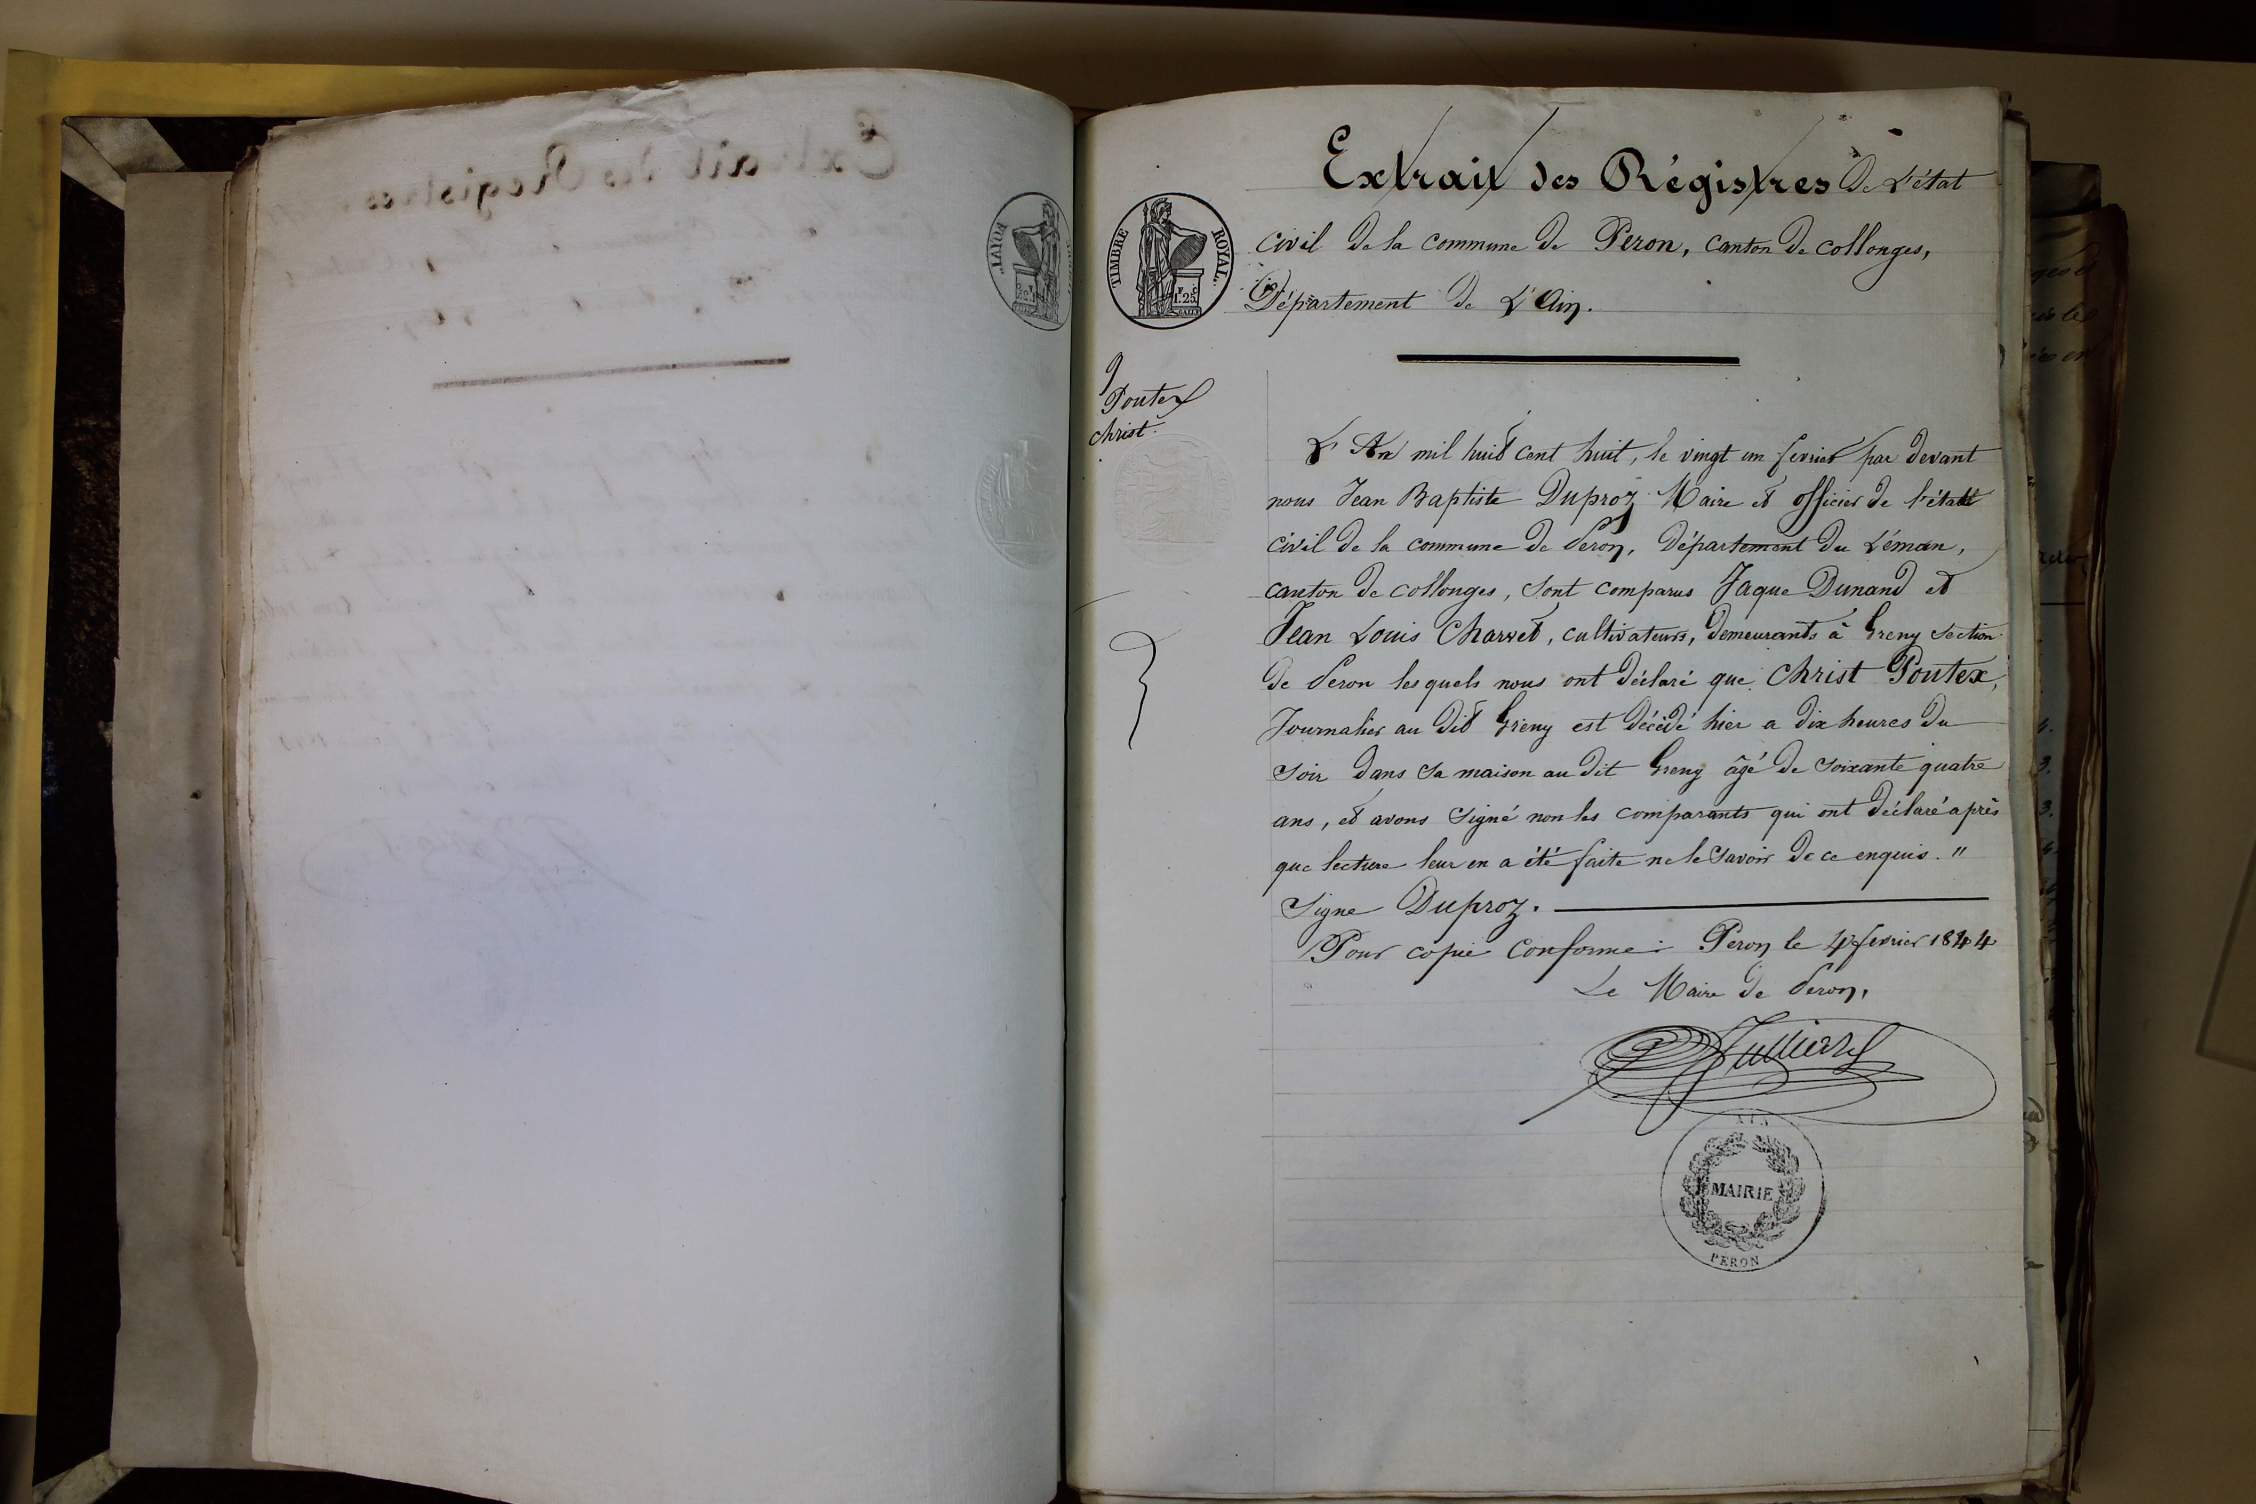 Extrait des Régistres
TIMBRE ROYAL
Extrait des Régistres de L'état
civil de la commune de Peron, canton de collonges,
Département de L'Ain.
TIMBRE ROYAL.
1.25
9
Poutex
christ.
L'An mil huit cent huit, le vingt un fevrier par devant
nous Jean Baptiste Duproz Maire et officier de l'état
civil de la commune de Peron, Département du Léman,
canton de collonges, sont comparus Jaque Dunand et
Jean Louis Charvet, cultivateurs, demeurants à Greny section
de Peron lesquels nous ont déclaré que Christ Poutex,
Journalier au dit Greny est décédé hier a dix heures du
soir dans sa maison au dit Greny âgé de soixante quatre
ans, et avons signé non les comparants qui ont déclaré après
que lecture leur en a été faite ne le savoir de ce enquis. "
Signe Duproz.
Pour copie conforme : Peron le 4 fevrier 1844
Le Maire de Peron,
AIN
MAIRIE
PERON